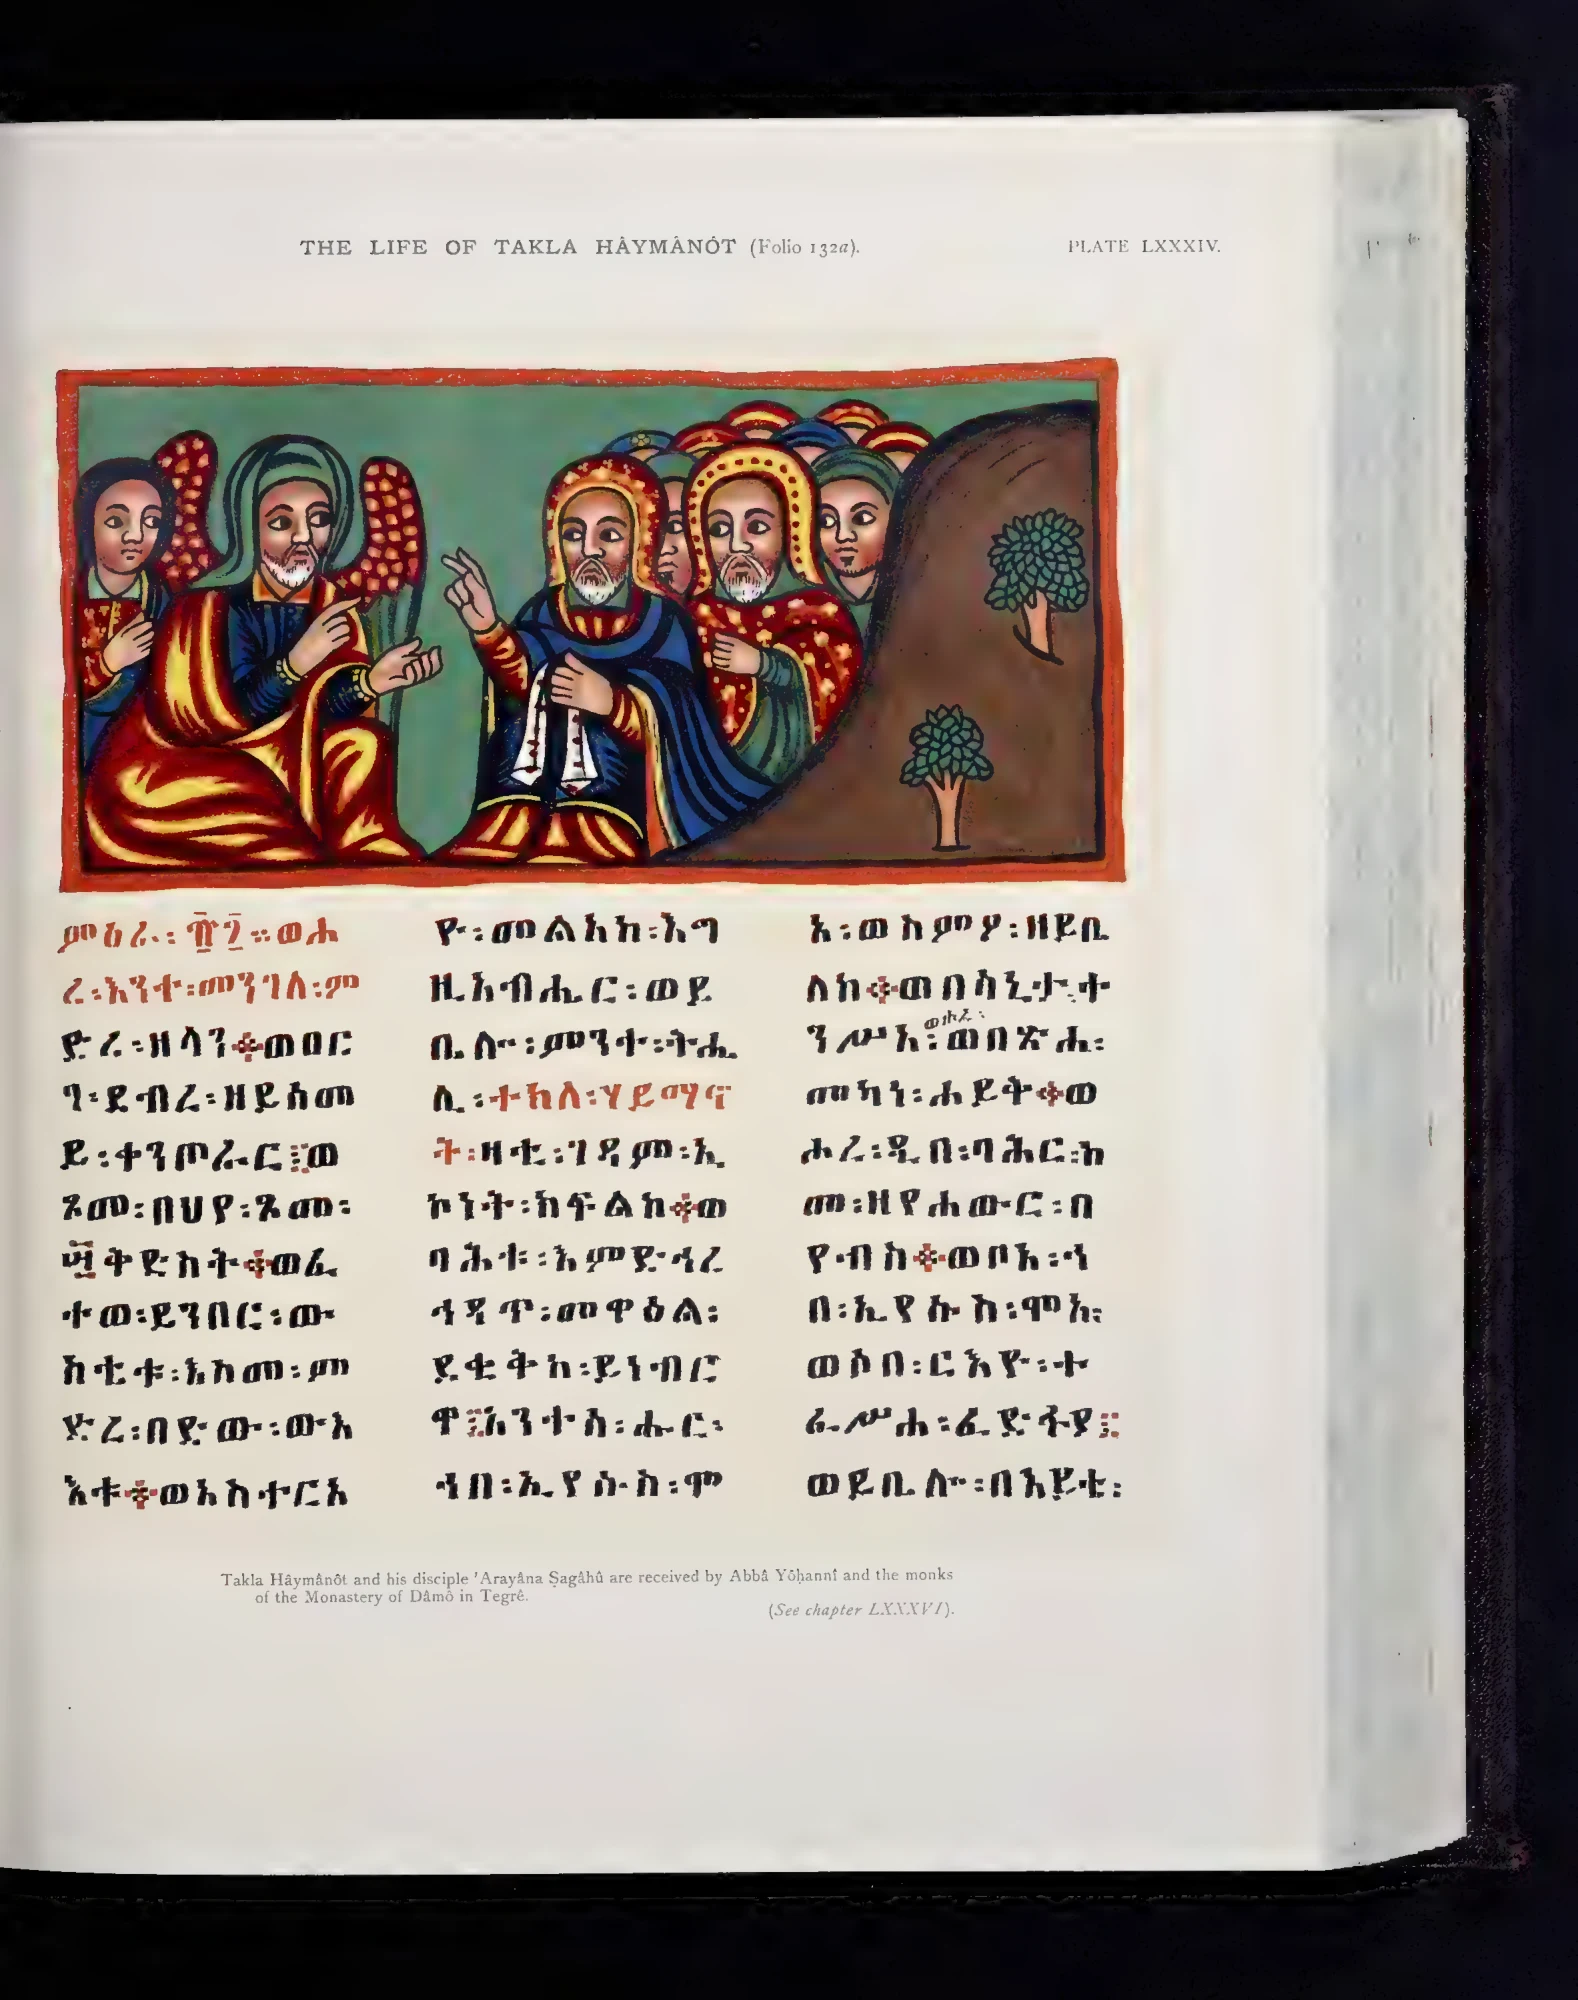 THE LIFE OF TAKLA HÂYMÂNÔT (Folio 132a).
PLATE LXXXIV.
ምዕራ፡ ፹፮ ። ወሐ
ረ፡እንተ፡መንገለ፡ም
ድረ፡ዘላን ወበር
ገ፡ደብረ፡ዘይሰመ
ይ፡ቀንጦራር ወ
ጾመ፡በህየ፡ጾመ፡
፵ ቅድስት ወፈ
ተወ፡ይንበር፡ው
ስቲቱ፡እስመ፡ም
ድረ፡በድው፡ውእ
እቱ ወአስተርአ
ዮ፡መልአከ፡እግ
ዚአብሔር፡ወይ
ቤሎ፡ምንተ፡ትሔ
ሊ፡ተክለ፡ሃይማኖ
ት፡ዛቲ፡ገዳም፡ኢ
ኮነት፡ክፍልከ ወ
ባሕቱ፡እምድኅረ
ኅዳጥ፡መዋዕል፡
ደቂቅከ፡ይነብር
ዋ አንተሰ፡ሑር፡
ኀበ፡ኢየሱስ፡ሞ
አ፡ወከምዖ፡ዘይቤ
ለከ ወበሰኒታ ት
ንሥአ፡ ወበጽሐ፡
ወሖረ፡
መካነ፡ሐይቅ ወ
ሖረ፡ዲበ፡ባሕር፡ከ
መ፡ዘየሐውር፡በ
የብስ ወቦአ፡ኀ
በ፡ኢየሱስ፡ሞአ፡
ወሶበ፡ርእዮ፡ተ
ፈሥሐ፡ፈድፋደ
ወይቤሎ፡በአይቴ፡
Takla Hâymânôt and his disciple 'Arayâna Ṣagâhû are received by Abbâ Yôḥannî and the monks
of the Monastery of Dâmô in Tegrê.
(See chapter LXXXVI).